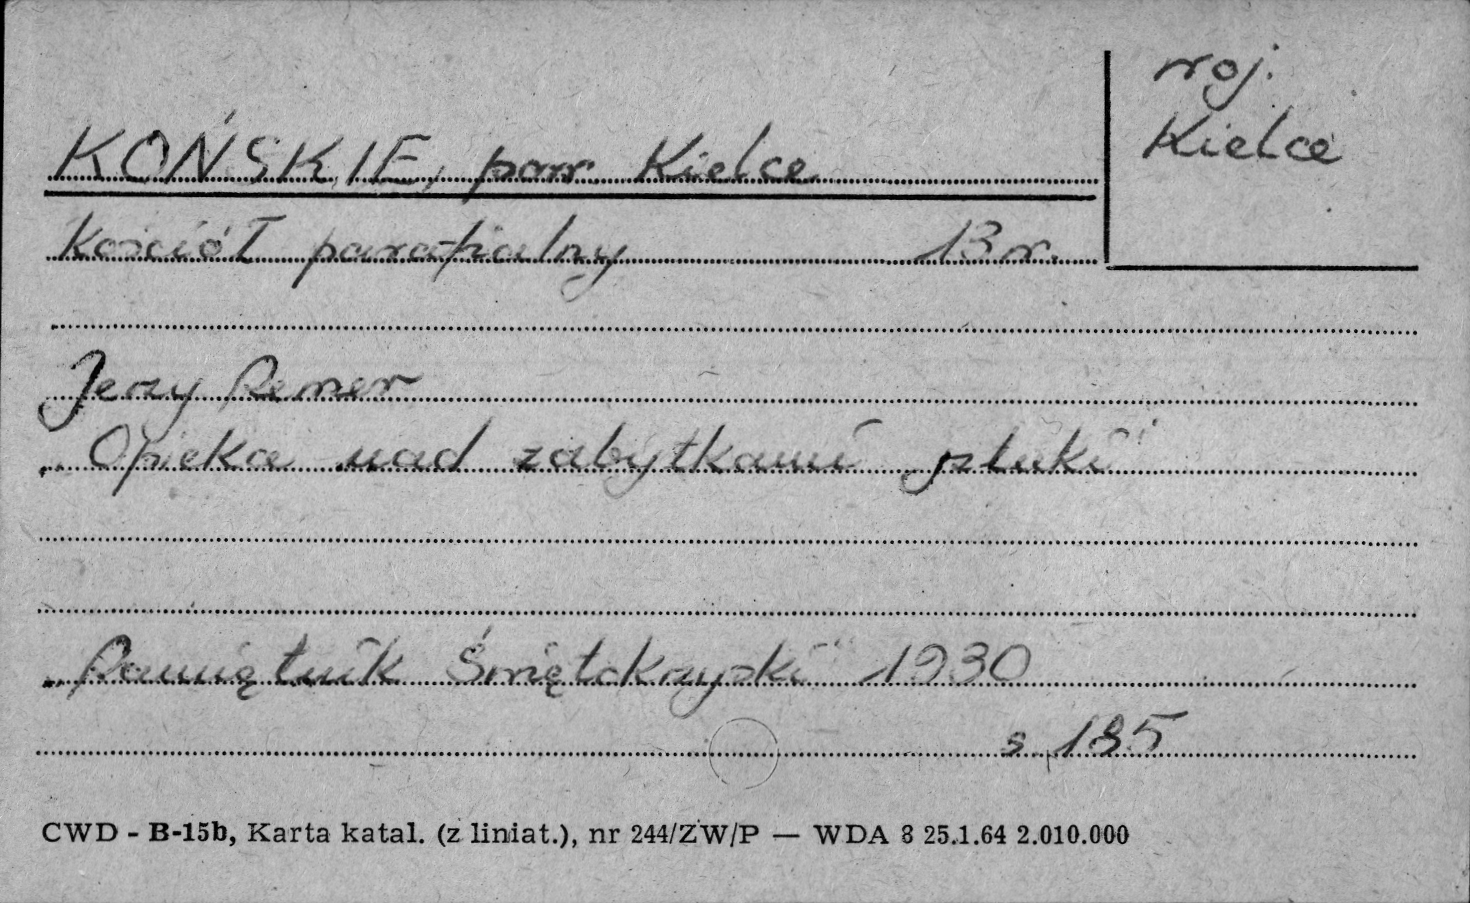 woj.
Kielce
KOŃSKIE, pow. Kielce
Kościół parafialny 13 w.
Jerzy Remer
„Opieka nad zabytkami sztuki"
„Pamiętnik Świętokrzyski" 1930
s 185
CWD - B-15b, Karta katal. (z liniat.), nr 244/ZW/P — WDA 3 25.1.64 2.010.000